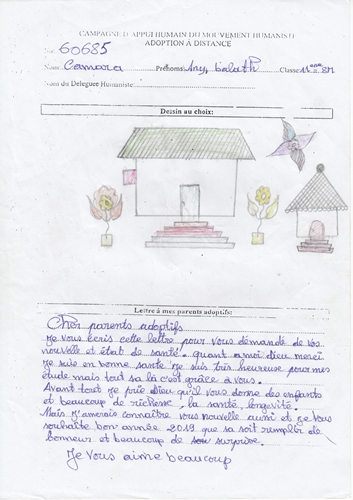 CAMPAGNE D'APPUI HUMAIN DU MOUVEMENT HUMANISTE
ADOPTION A DISTANCE
60685
Nom: Camara Prénoms: Any, Classe
Nom du Déléguée Humaniste:
Dessin au choix:
Lettre à mes parents adoptifs:
Cher parents adoptifs
Je vous écris cette lettre pour vous démandé de vos
nouvelle et état de santé. quant a moi dieu merci
je suie en bonne sante je suis très heureuse pour mes
étude mais tout sa là c'est grâce à vous.
Avant tout je prie dieu qu'il vous donne des enfants
et beaucoup de richesse, la santé, longévité.
Mais j'amerais connaître vous nouvelle aussi et je vous
souhaite bon année 2019 que sa soit remplir de
bonneur et beaucoup de son surprise.
Je vous aime beaucoup